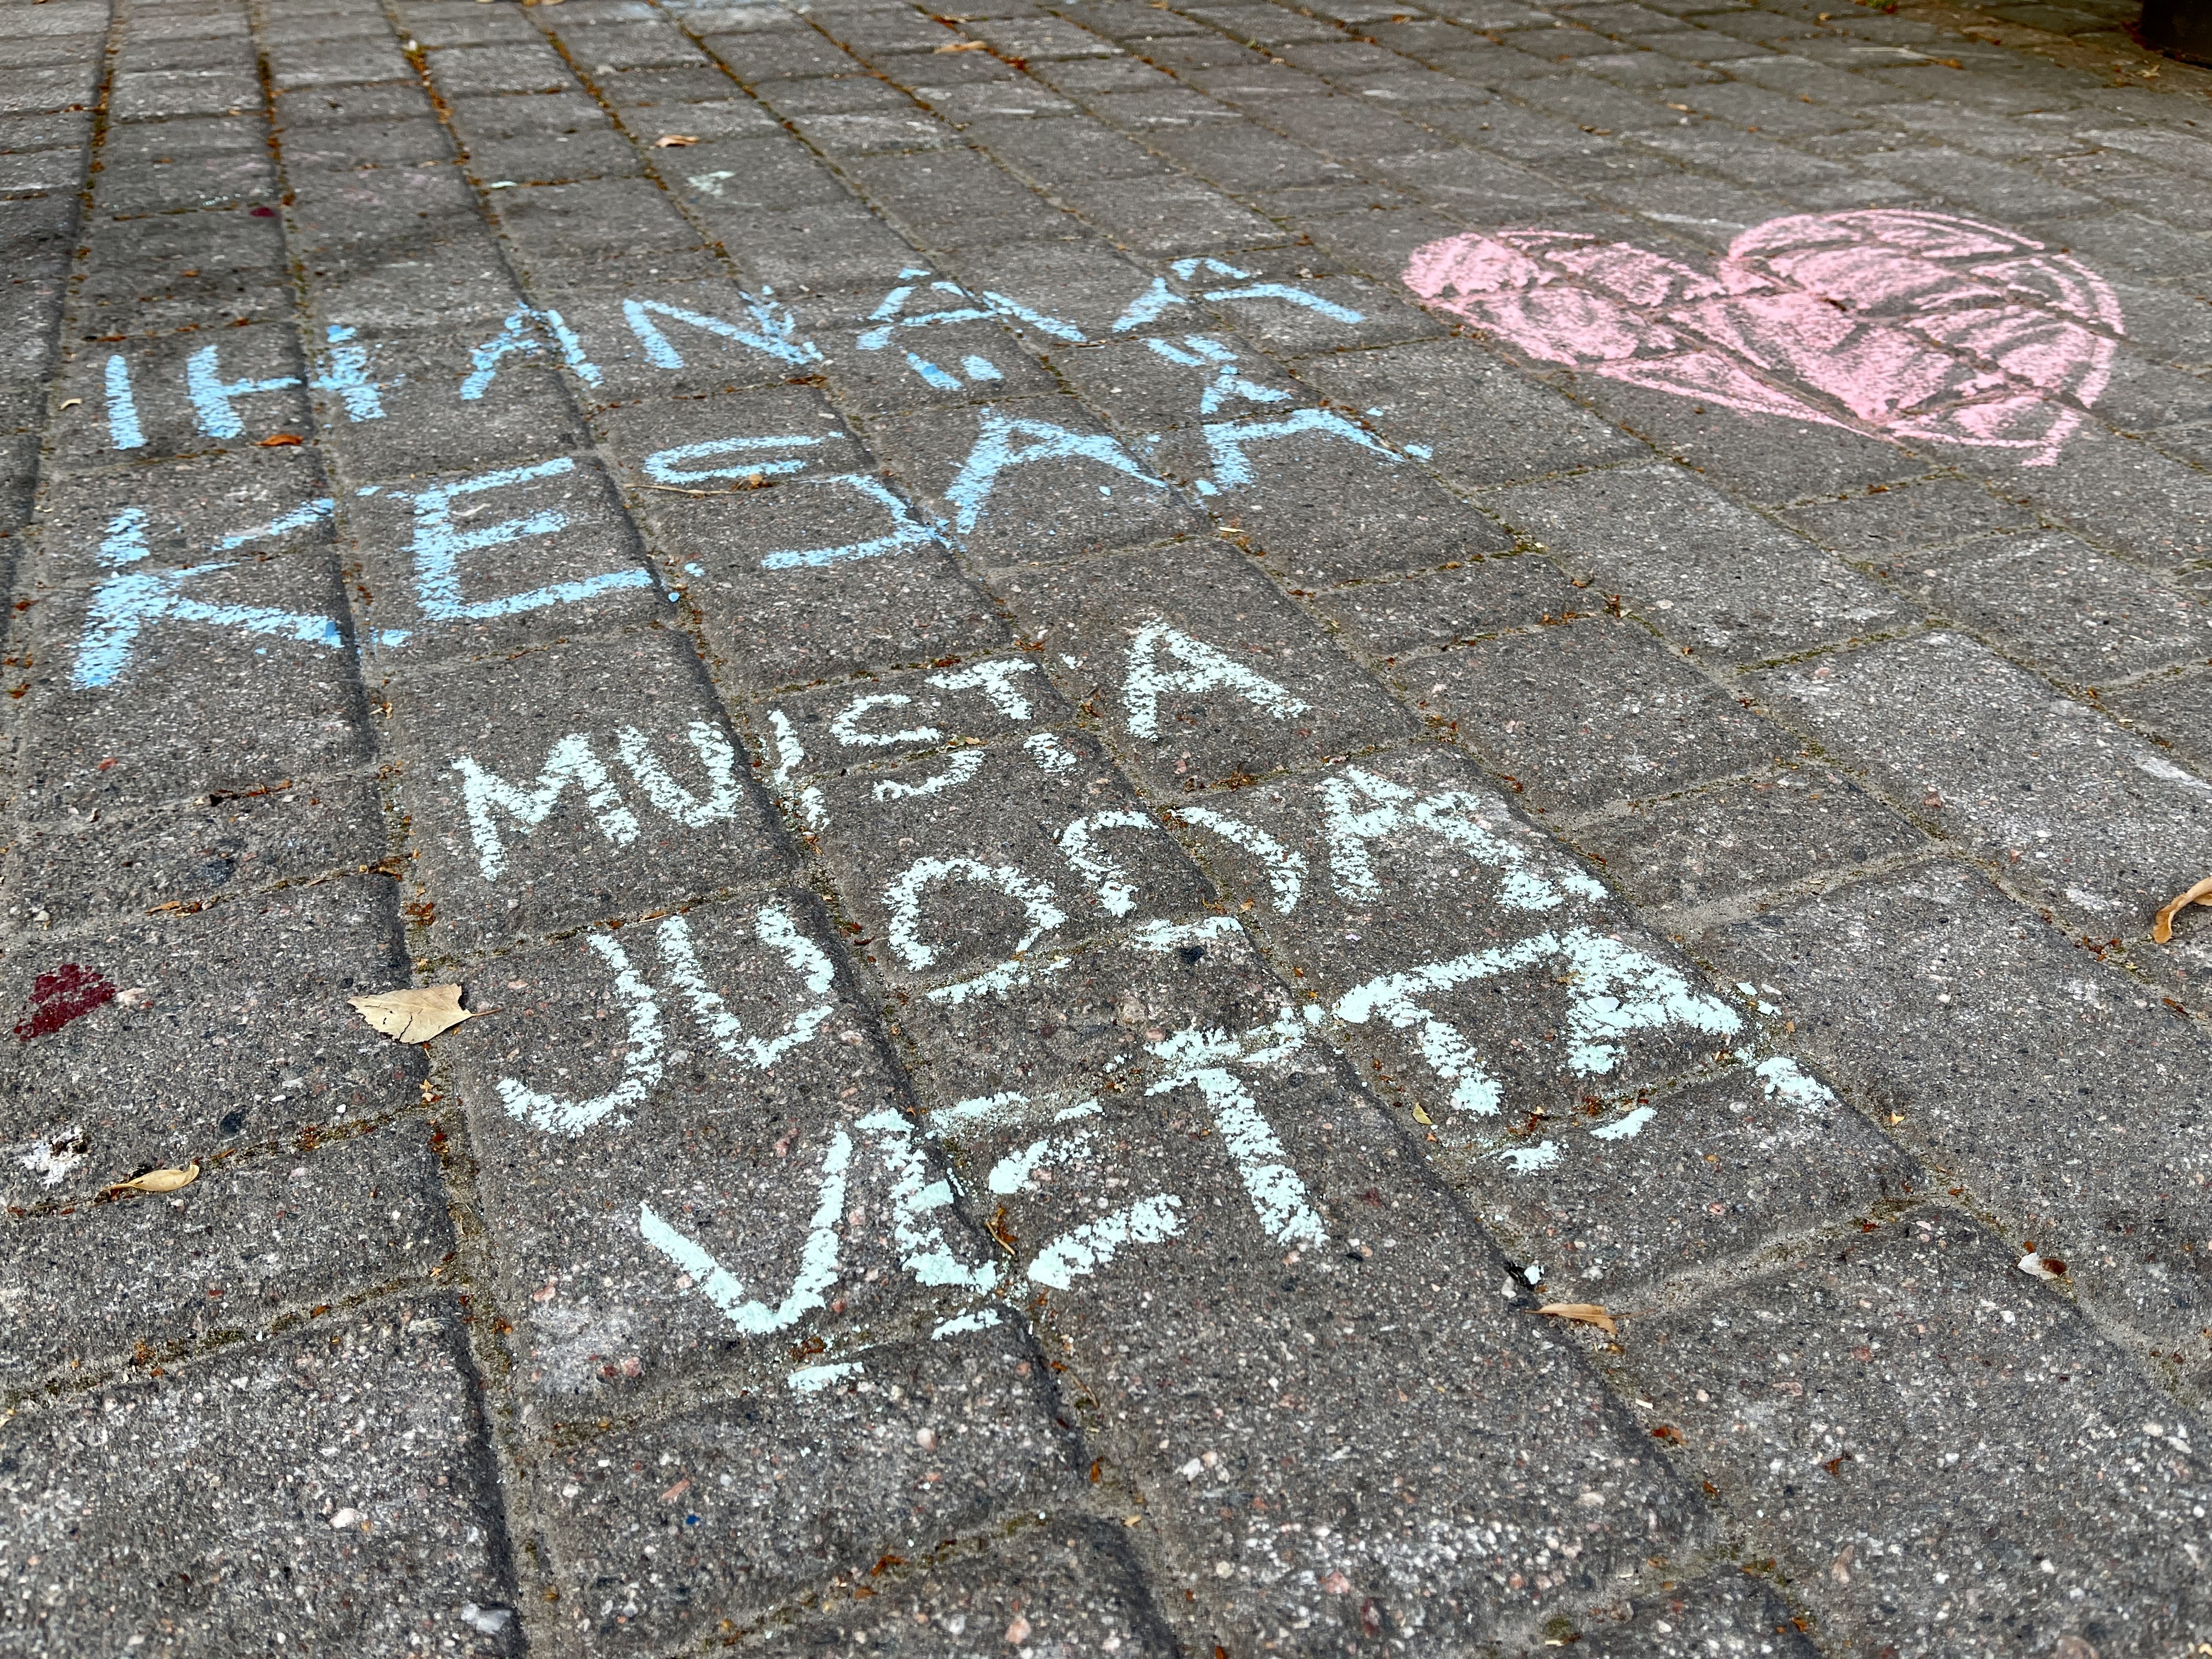 IHANAA
KESÄÄ
MUISTA
JUODA
VETTÄ!